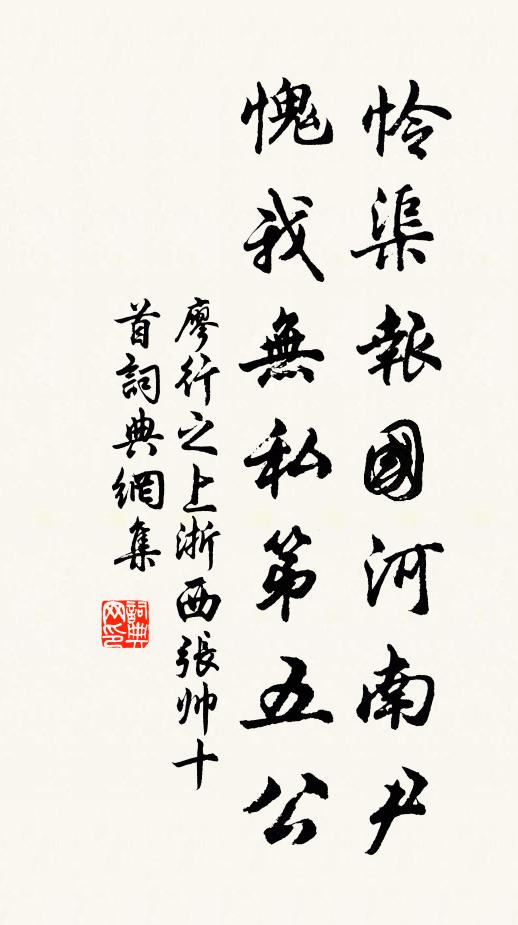 怜渠報國河南尹
愧我無私第五公
廖行之上浙西張帅十
首詞典網集
詞典
网印